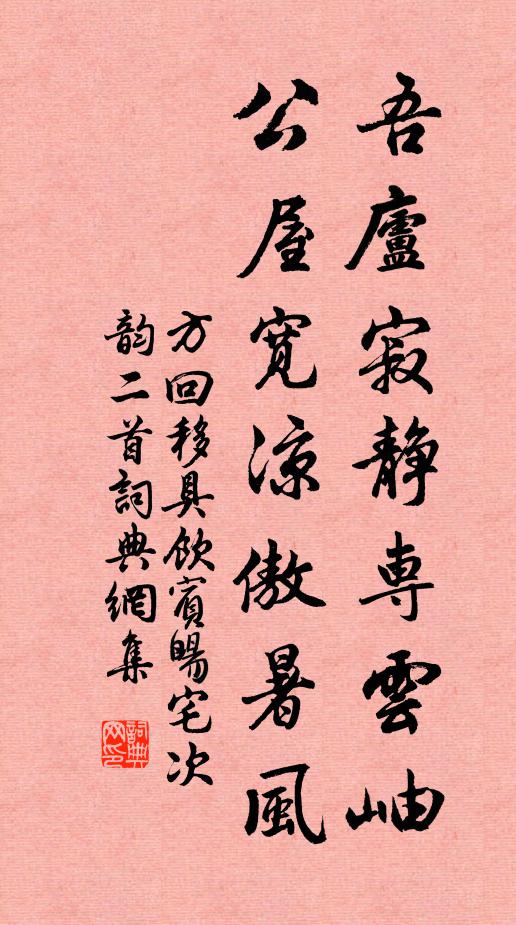 吾廬寂靜専雲岫
公屋寬涼傲暑風
方回移具飲賓暘宅次
韵二首詞典網集
詞典網印